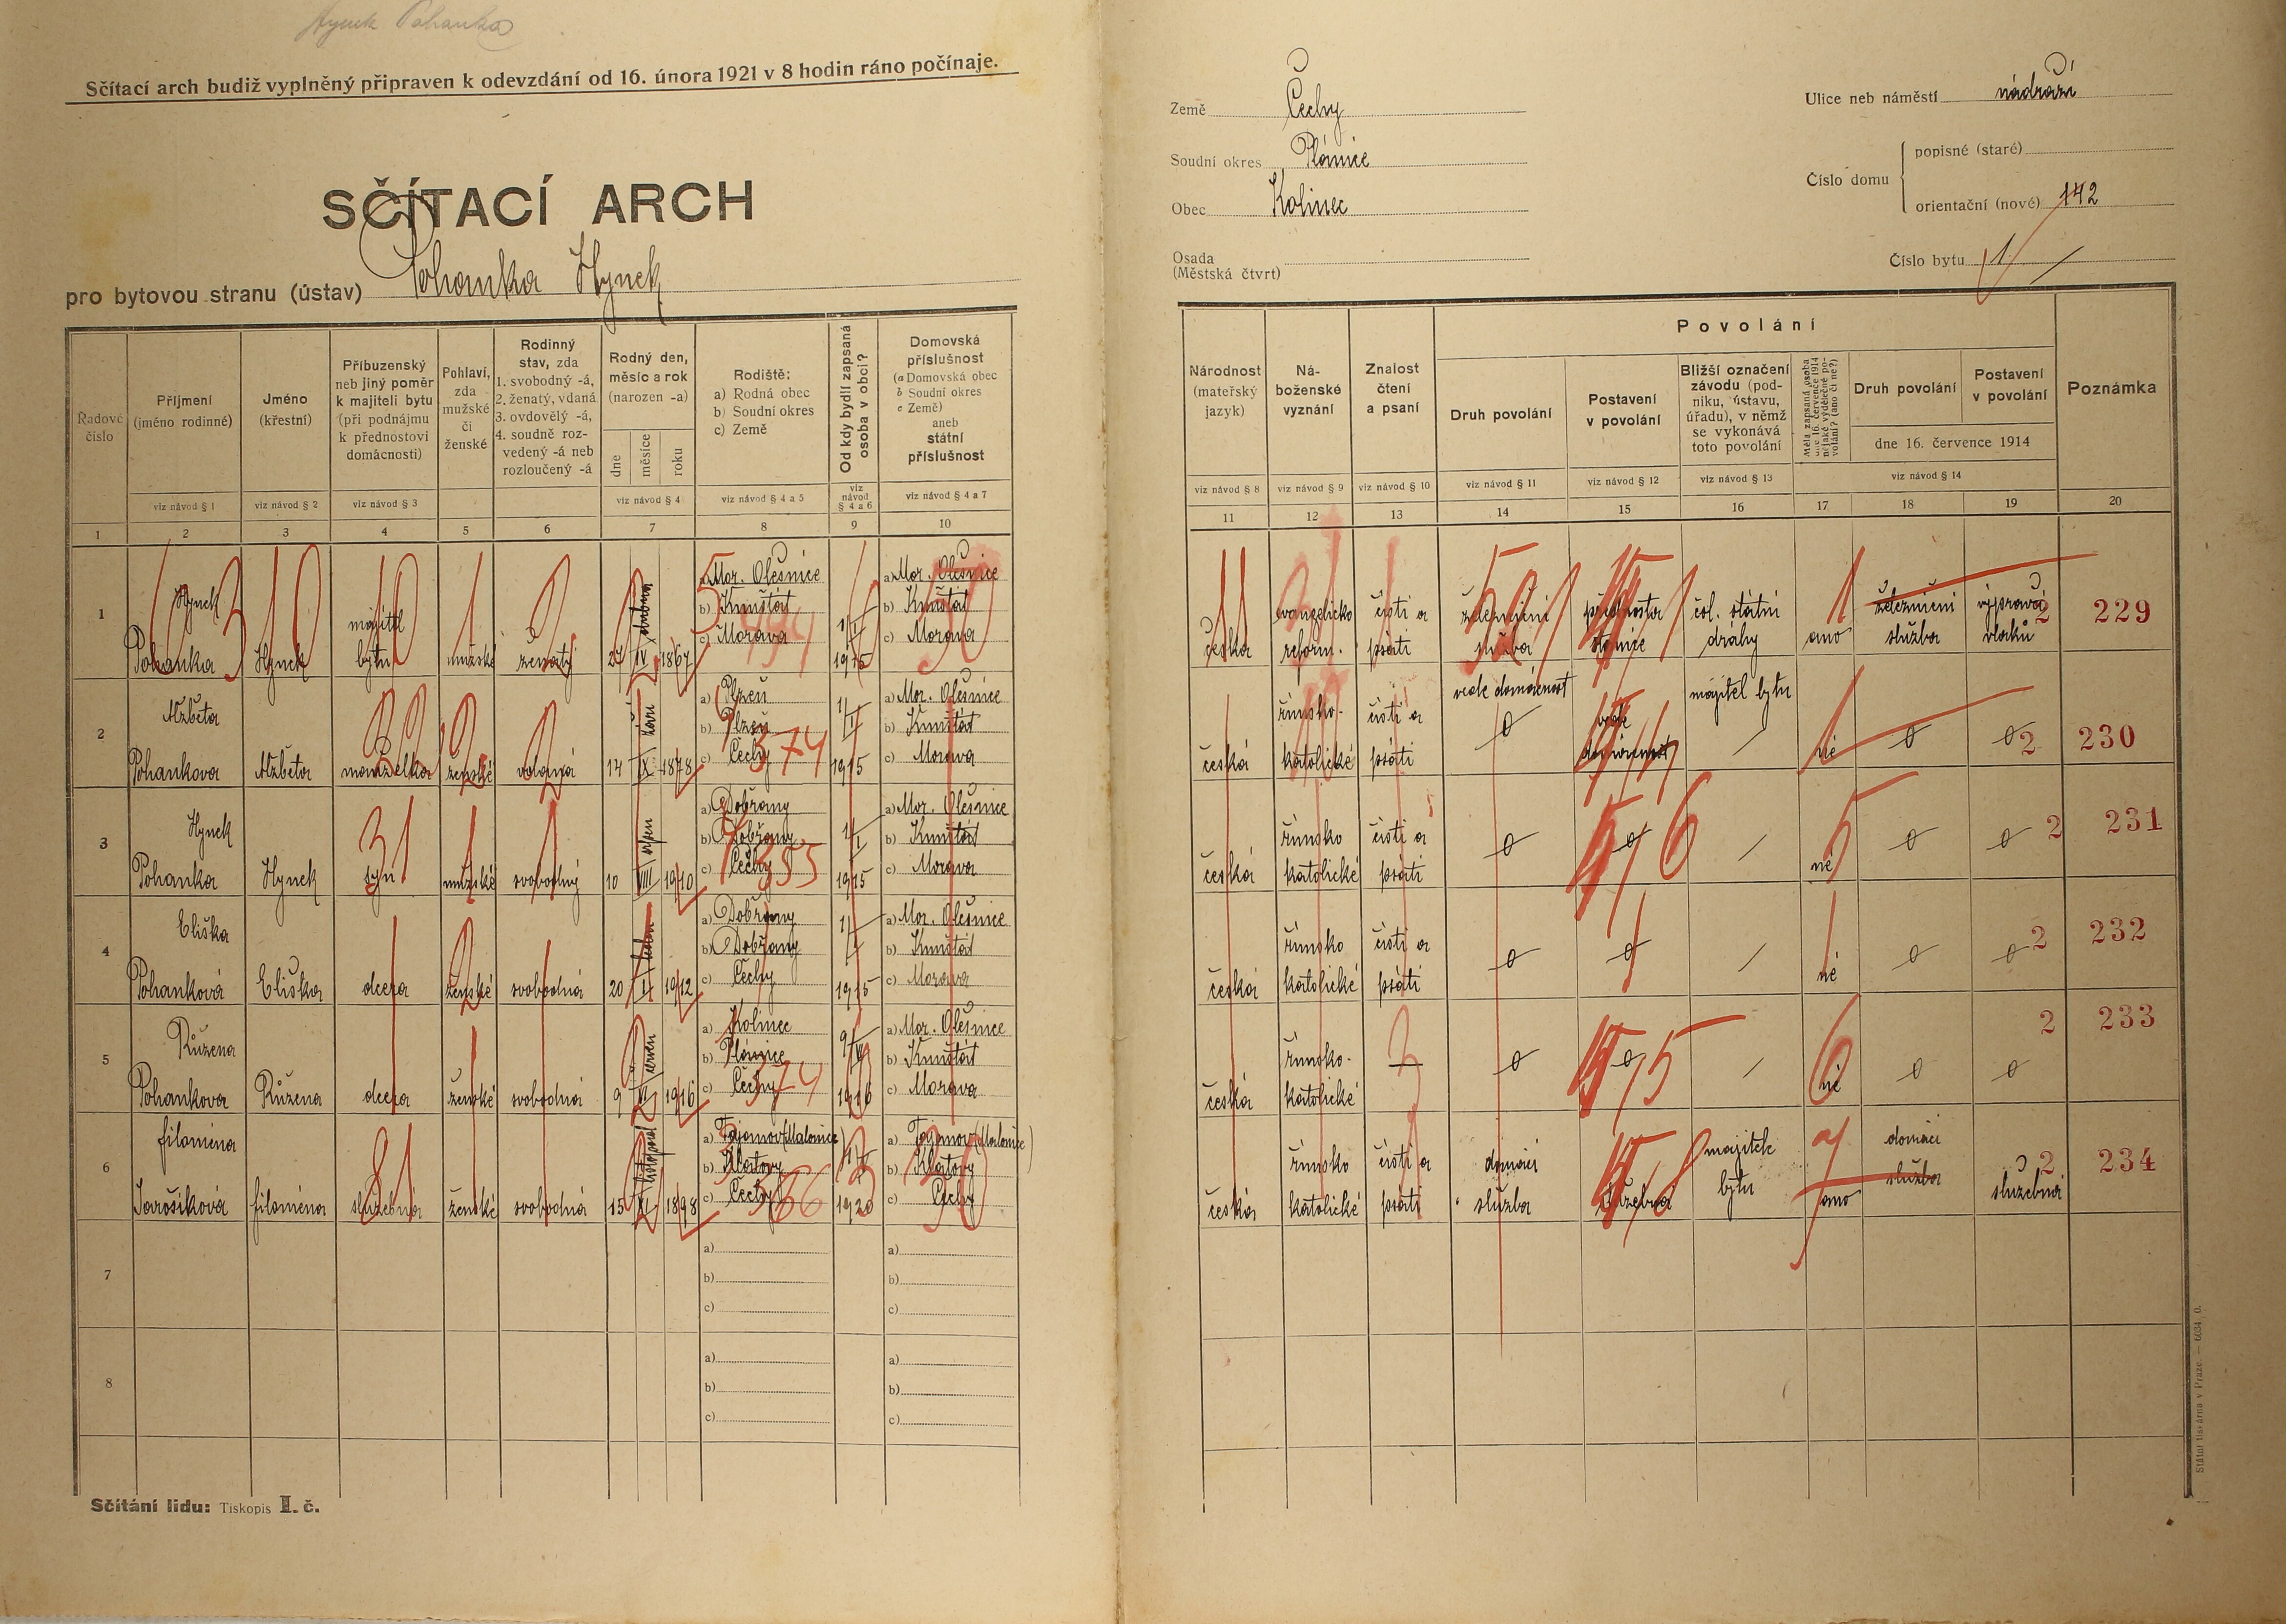 Hynek Pohanka
Sčítací arch budiž vyplněný připraven k odevzdání od 16. února 1921 v 8 hodin ráno počínaje.
SČÍTACÍ ARCH
pro bytovou stranu (ústav) Pohanka Hynek
Země Čechy
Soudní okres Plánice
Obec Kolinec
Osada
(Městská čtvrt)
Ulice neb náměstí nádraží
Číslo domu
popisné (staré)
orientační (nové) 142
Číslo bytu 1
Řadové číslo
Příjmení (jméno rodinné)
viz návod § 1
Jméno (křestní)
viz návod § 2
Příbuzenský neb jiný poměr k majiteli bytu (při podnájmu k přednostovi domácnosti)
viz návod § 3
Pohlaví, zda mužské či ženské
Rodinný stav, zda
1. svobodný -á,
2. ženatý, vdaná
3. ovdovělý -á,
4. soudně rozvedený -á neb rozloučený -á
Rodný den, měsíc a rok (narozen -a)
dne měsíce roku
viz návod § 4
Rodiště:
a) Rodná obec
b) Soudní okres
c) Země
viz návod § 4 a 5
Od kdy bydlí zapsaná osoba v obci?
viz návod § 4 a 6
Domovská příslušnost
(a Domovská obec
b Soudní okres
c Země)
aneb
státní příslušnost
viz návod § 4 a 7
Národnost (mateřský jazyk)
viz návod § 8
Náboženské vyznání
viz návod § 9
Znalost čtení a psaní
viz návod § 10
Povolání
Druh povolání
viz návod § 11
Postavení v povolání
viz návod § 12
Bližší označení závodu (podniku, ústavu, úřadu), v němž se vykonává toto povolání
viz návod § 13
Měla zapsaná osoba dne 16. července 1914 nějaké výdělečné povolání? (ano či ne?)
Druh povolání
Postavení v povolání
dne 16. července 1914
viz návod § 14
Poznámka
1 2 3 4 5 6 7 8 9 10 11 12 13 14 15 16 17 18 19 20
1 Hynek Pohanka Hynek majitel bytu mužské ženatý 27 IV 1867
a) Mor. Olešnice
b) Kunštát
c) Morava
1915
a) Mor. Olešnice
b) Kunštát
c) Morava
česká evangelicko reform. čísti a psáti železniční služba přednosta stanice čsl. státní dráhy ano železniční služba výpravčí vlaků 2 229
2 Alžběta Pohankova Alžběta manželka ženské vdaná 14 IX září 1878
a) Plzeň
b) Plzeň
c) Čechy
374
1915
a) Mor. Olešnice
b) Kunštát
c) Morava
česká římsko-katolické čísti a psáti vede domácnost 0 vede domácnost majitel bytu / né 0 0 2 230
3 Hynek Pohanka Hynek syn mužské svobodný 10 VIII srpen 1910
a) Dobřany
b) Dobřany
c) Čechy
355
1915
a) Mor. Olešnice
b) Kunštát
c) Morava
česká římsko katolické čísti a psáti 0 0 / né 0 0 2 231
4 Eliška Pohanková Eliška dcera ženské svobodná 20 I leden 1912
a) Dobřany
b) Dobřany
c) Čechy
1915
a) Mor. Olešnice
b) Kunštát
c) Morava
česká římsko katolické čísti a psáti 0 0 / né 0 0 2 232
5 Růžena Pohankova Růžena dcera ženské svobodná 9 VI červen 1916
a) Kolinec
b) Plánice
c) Čechy
374
9/VI 1916
a) Mor. Olešnice
b) Kunštát
c) Morava
česká římsko-katolické — 0 0 / né 0 0 2 233
6 filoména Jarošiková filoména služebna ženské svobodná 15 XI listopad 1898
a) Tajanov (Malonice)
b) Klatovy
c) Čechy
366
1920
a) Tajanov (Malonice)
b) Klatovy
c) Čechy
česká římsko katolické čísti a psáti domácí služba služebna majitele bytu ano domácí služba služebná 2 234
7
a)
b)
c)
a)
b)
c)
8
a)
b)
c)
a)
b)
c)
Sčítání lidu: Tiskopis II. č.
Státní tiskárna v Praze. — 6034 0.